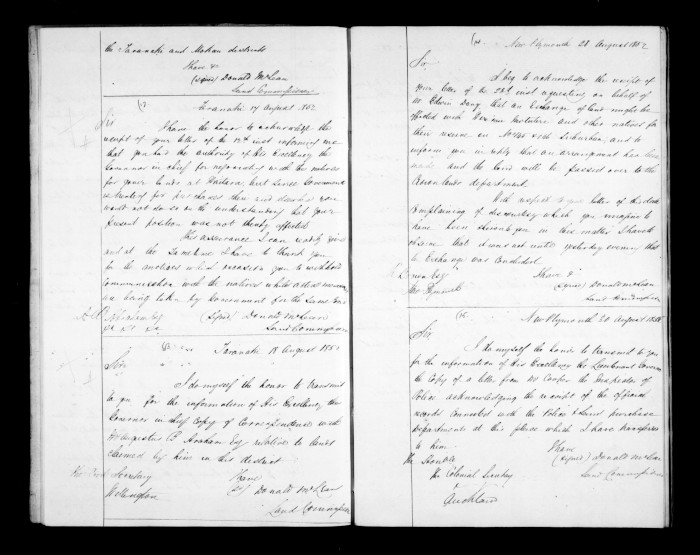 the Taranaki and Mokau districts
I have &c
(signed) Donald McLean
Land Commissioner
Taranaki 17 August 1852
Sir
I have the honor to acknowledge the
receipt of your letter of the 12th inst informing me
that you had the authority of His Excellency the
Governor in chief for negotiating with the natives
for your lands at
would not do so on the understanding that your
present position was not thereby affected
This assurance I can readily give
and at the same time I have to thank you
for the motives which occasion you to withhold
communication with the natives whilst
are being taken by Government for the same
(signed) Donald McLean
Land Commissioner
Taranaki 18 August 1852
Sir
I do myself the honor to transmit
to you for the information of His Excellency the
Governor in Chief Copy of Correspondence with
Mr Augustus Abraham Esq relative to lands
claimed by him in this district
Secretary
I have
Wellington
Donald McLean
Land Commissioner
New Plymouth 28 August 1852
Sir
I beg to acknowledge the receipt of
your letter of the 23rd inst requesting on behalf of
Mr Edwin Davy that an exchange of land might be
effected with and other natives for
their reserve on No Suburban, and to
inform you in reply that an arrangement has been
made and the land will be passed over to the
Crown lands department.
With respect to your letter of this date
complaining of discourtesy which you imagine to
have been shewn to you in this matter I have to
observe that it was not until yesterday evening that
the Exchange was concluded
I have &
Esq
New Plymouth
(signed) Donald McLean
Land Commissioner
New Plymouth 20 August 1852
Sir
I do myself the honor to transmit to you
for the information of His Excellency the Lieutenant Governor
the Copy of a letter from Mr Cooper the Inspector of
Police acknowledging the receipt of the official
records connected with the Police & Land purchase
Departments at this place which I have transferred
to him.
I have
(signed) Donald McLean
Land Commissioner
The Honble
The Colonial Secretary
Auckland